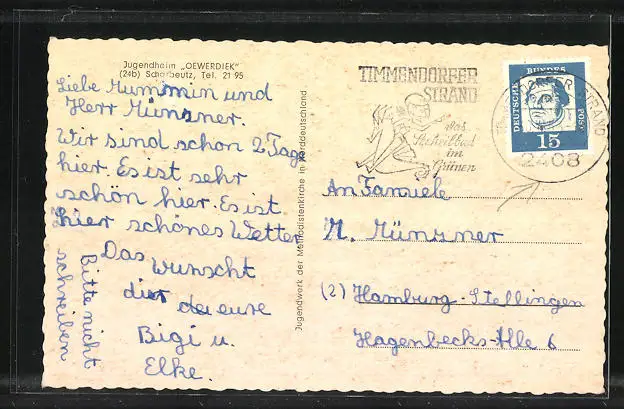 Jugendheim „OEWERDIEK"
(24b) Scharbeutz, Tel. 21 95
Liebe Mummin und
Herr Münzner.
Wir sind schon 2 Tage
hier. Es ist sehr
schön hier. Es ist
hier schönes Wetter
Das wünscht
dir deeure
Bigi u.
Elke.
Bitte nicht
schreiben
Jugendwerk der Methodistenkirche in Norddeutschland
TIMMENDORFER
STRAND
das
Seeheilbad
im
Grünen
DEUTSCHE
BUNDES
POST
15
TIMMENDORFER STRAND
2408
An Famiele
M. Münzner
(2) Hamburg-Stellingen
Hagenbecks-Alle 6